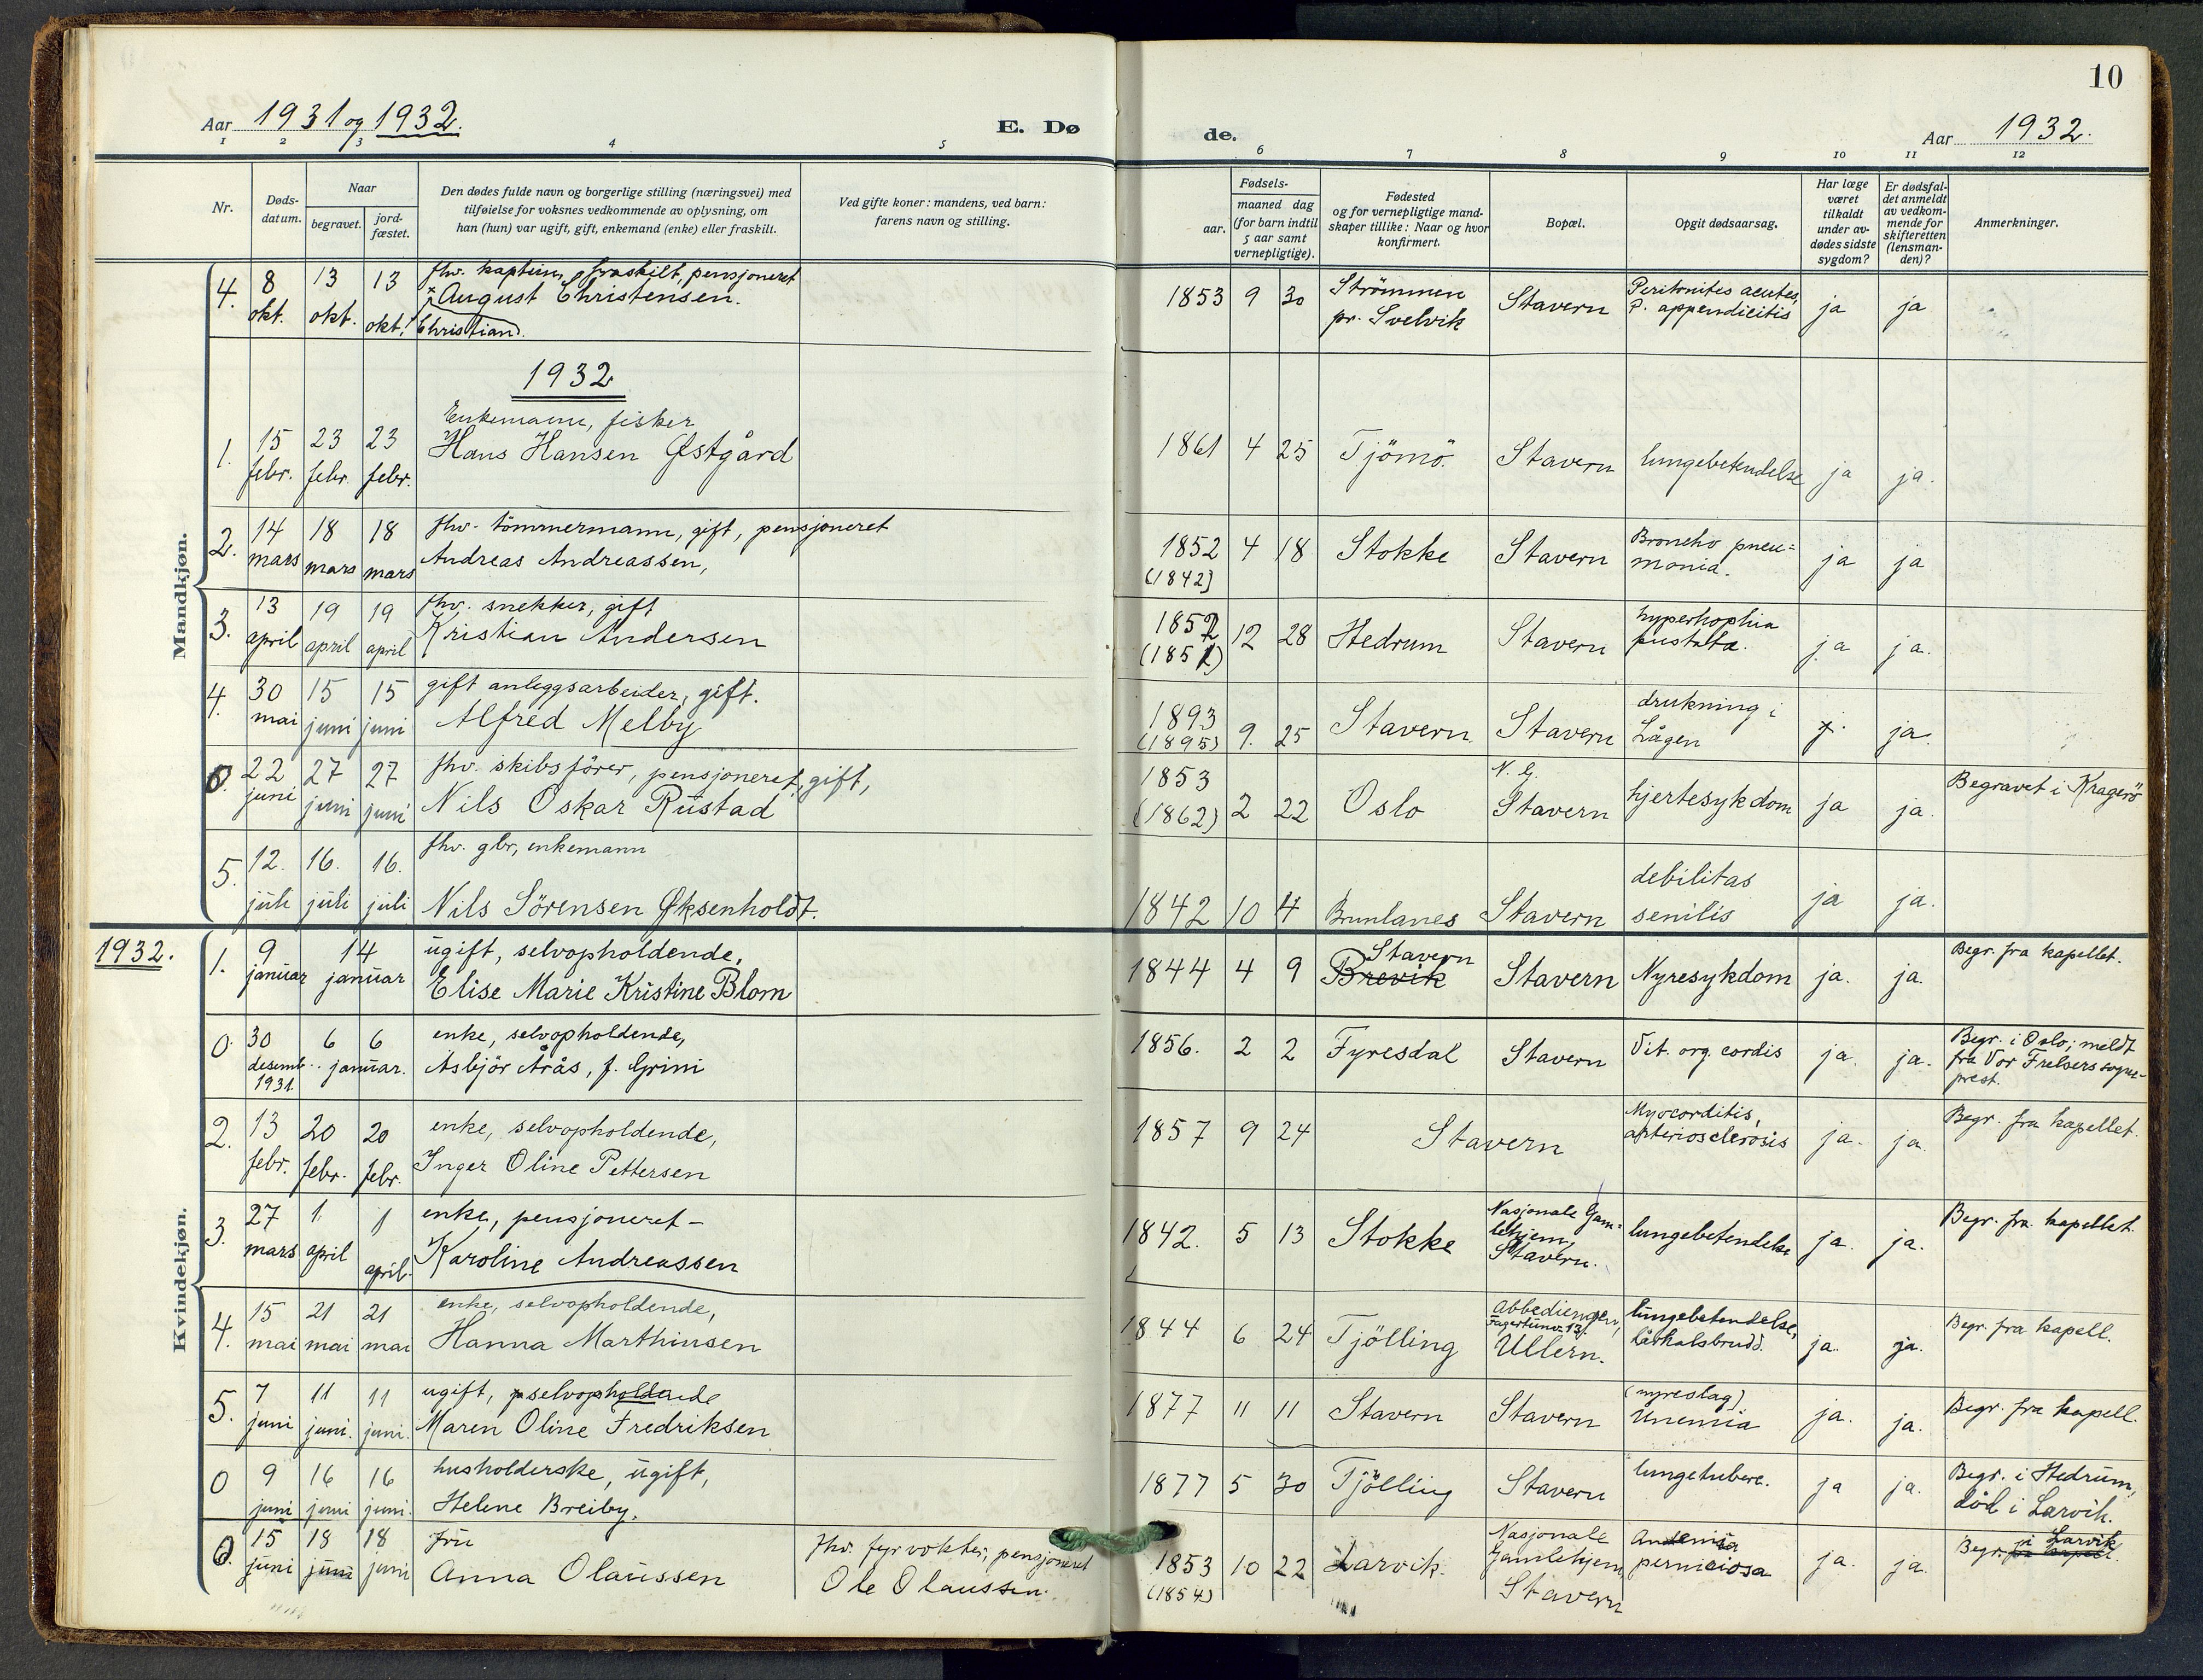 10
Aar 1931 og 1932.
E. Dø
de.
Aar 1932.
1 2 3 4 5 6 7 8 9 10 11 12
Nr.
Døds-
datum.
Naar
begravet.
jord-
fæstet.
Den dødes fulde navn og borgerlige stilling (næringsvei) med
tilføielse for voksnes vedkommende av oplysning, om
han (hun) var ugift, gift, enkemand (enke) eller fraskilt.
Ved gifte koner: mandens, ved barn:
farens navn og stilling.
Fødsels-
aar.
maaned dag
(for barn indtil
5 aar samt
vernepligtige).
Fødested
og for vernepligtige mand-
skaper tillike: Naar og hvor
konfirmert.
Bopæl.
Opgit dødsaarsag.
Har læge
været
tilkaldt
under av-
dødes sidste
sygdom?
Er dødsfal-
det anmeldt
av vedkom-
mende for
skifteretten
(lensman-
den)?
Anmerkninger.
Mandkjøn.
4. 8 okt. 13 okt. 13 okt.
fhv. kaptein, fraskilt, pensjoneret
August Christensen.
Christian.
1853 9 30 Strömmen
pr. Svelvik
Stavern
Peritonites acutes,
P. appendicitis
ja ja
1932
1. 15 febr. 23 febr. 23 febr.
Enkemann, fisker
Hans Hansen Østgård
1861 4 25 Tjömö. Stavern lungebetendelse ja ja.
2. 14 mars 18 mars 18 mars
fhv. tömmermann, gift, pensjoneret
Andreas Andreassen,
1852
(1842)
4 18 Stokke Stavern
Broncho pneu=
monia.
ja ja
3. 13 april 19 april 19 april
fhv. snekker, gift
Kristian Andersen
1852
(1851)
12 28 Hedrum Stavern
ja ja.
4. 30 mai 15 juni 15 juni
gift anleggsarbeider, gift.
Alfred Melby
1893
(1895)
9. 25 Stavern Stavern
drukning i
Lågen
j. ja.
0. 22 juni 27 juni 27 juni
fhv. skibsförer, pensjoneret, gift,
Nils Oskar Rustad
1853
(1862)
2 22 Oslo
N. G.
Stavern
hjertesykdom ja ja.
Begravet i Kragerö
5. 12. juli 16. juli 16. juli
fhv. gbr, enkemann
Nils Sörensen Øksenholdt.
1842 10 4 Brunlanes Stavern
debilitas
senilis
ja ja.
1932.
Kvindekjøn.
1. 9 januar 14 januar
ugift, selvopholdende,
Elise Marie Kristine Blom
1844 4 9
Stavern
Brevik
Stavern Nyresykdom ja. ja.
Begr. fra kapellet.
0. 30 desemb. 1931. 6 6 januar.
enke, selvopholdende,
Asbjör Årås, f. Grini
1856. 2 2 Fyresdal Stavern Vit. org. cordis ja. ja.
Begr. i Oslo; meldt
fra Vor Frelsers sogne-
prest.
2. 13 febr. 20 febr. 20 febr.
enke, selvopholdende,
Inger Oline Pettersen
1857 9 24 Stavern
Myocorditis,
arteriosclerosis
ja. ja.
Begr. fra kapellet.
3. 27 mars 1. april 1 april.
enke, pensjoneret -
Karoline Andreassen
1842. 5 13 Stokke
Nasjonale Gam=
lehjem,
Stavern.
lungebetendelse ja. ja.
Begr. fra kapellet.
4. 15 mai 21 mai 21 mai
enke, selvopholdende,
Hanna Marthinsen
1844 6 24 Tjölling
Abbediengen,
Ullern.
lungebetendelse,
Lårhalsbrudd.
ja. ja.
Begr. fra kapell.
5. 7 juni 11 juni. 11 juni.
ugift, selvopholdende
Maren Oline Fredriksen
1877 11 11 Stavern Stavern
(nyreslag)
Uremia
ja. ja.
Begr. fra kapell.
0 9 juni 16 juni 16 juni.
husholderske, ugift,
Helene Breiby.
1877 5 30 Tjölling Stavern lungetuberc. ja ja.
Begr. i Hedrum,
död i Larvik.
0. 15 juni 18 juni 18 juni
fru
Anna Olaussen
fhv. fyrvokter, pensjoneret
Ole Olaussen.
1853
(1854)
10 22 Larvik.
Nasjonale
Gamlehjem,
Stavern
Anemia
perniciosa
ja. ja.
Begr. i Larvik